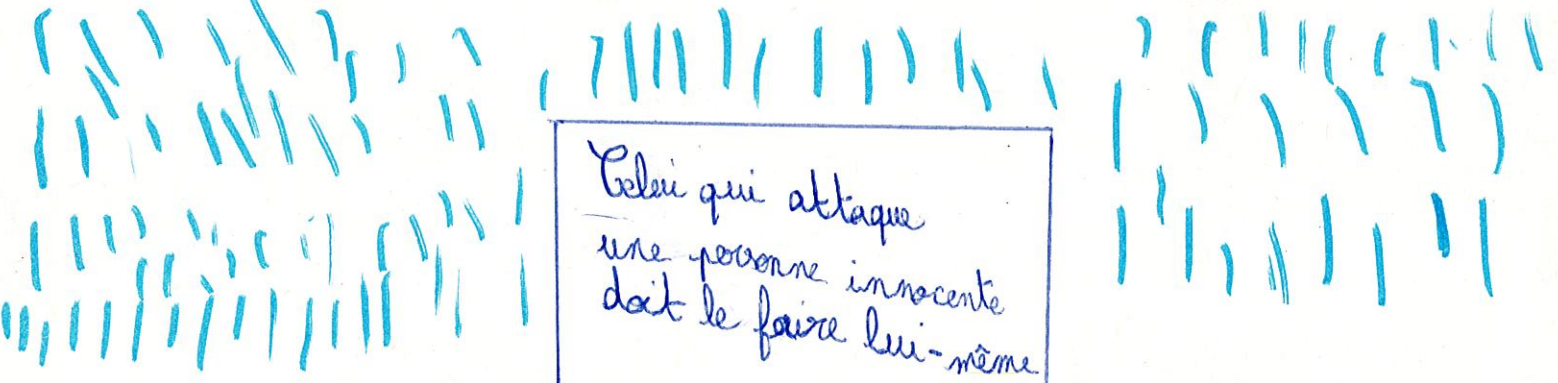 Celui qui attaque
une personne innocente
doit le faire lui-même